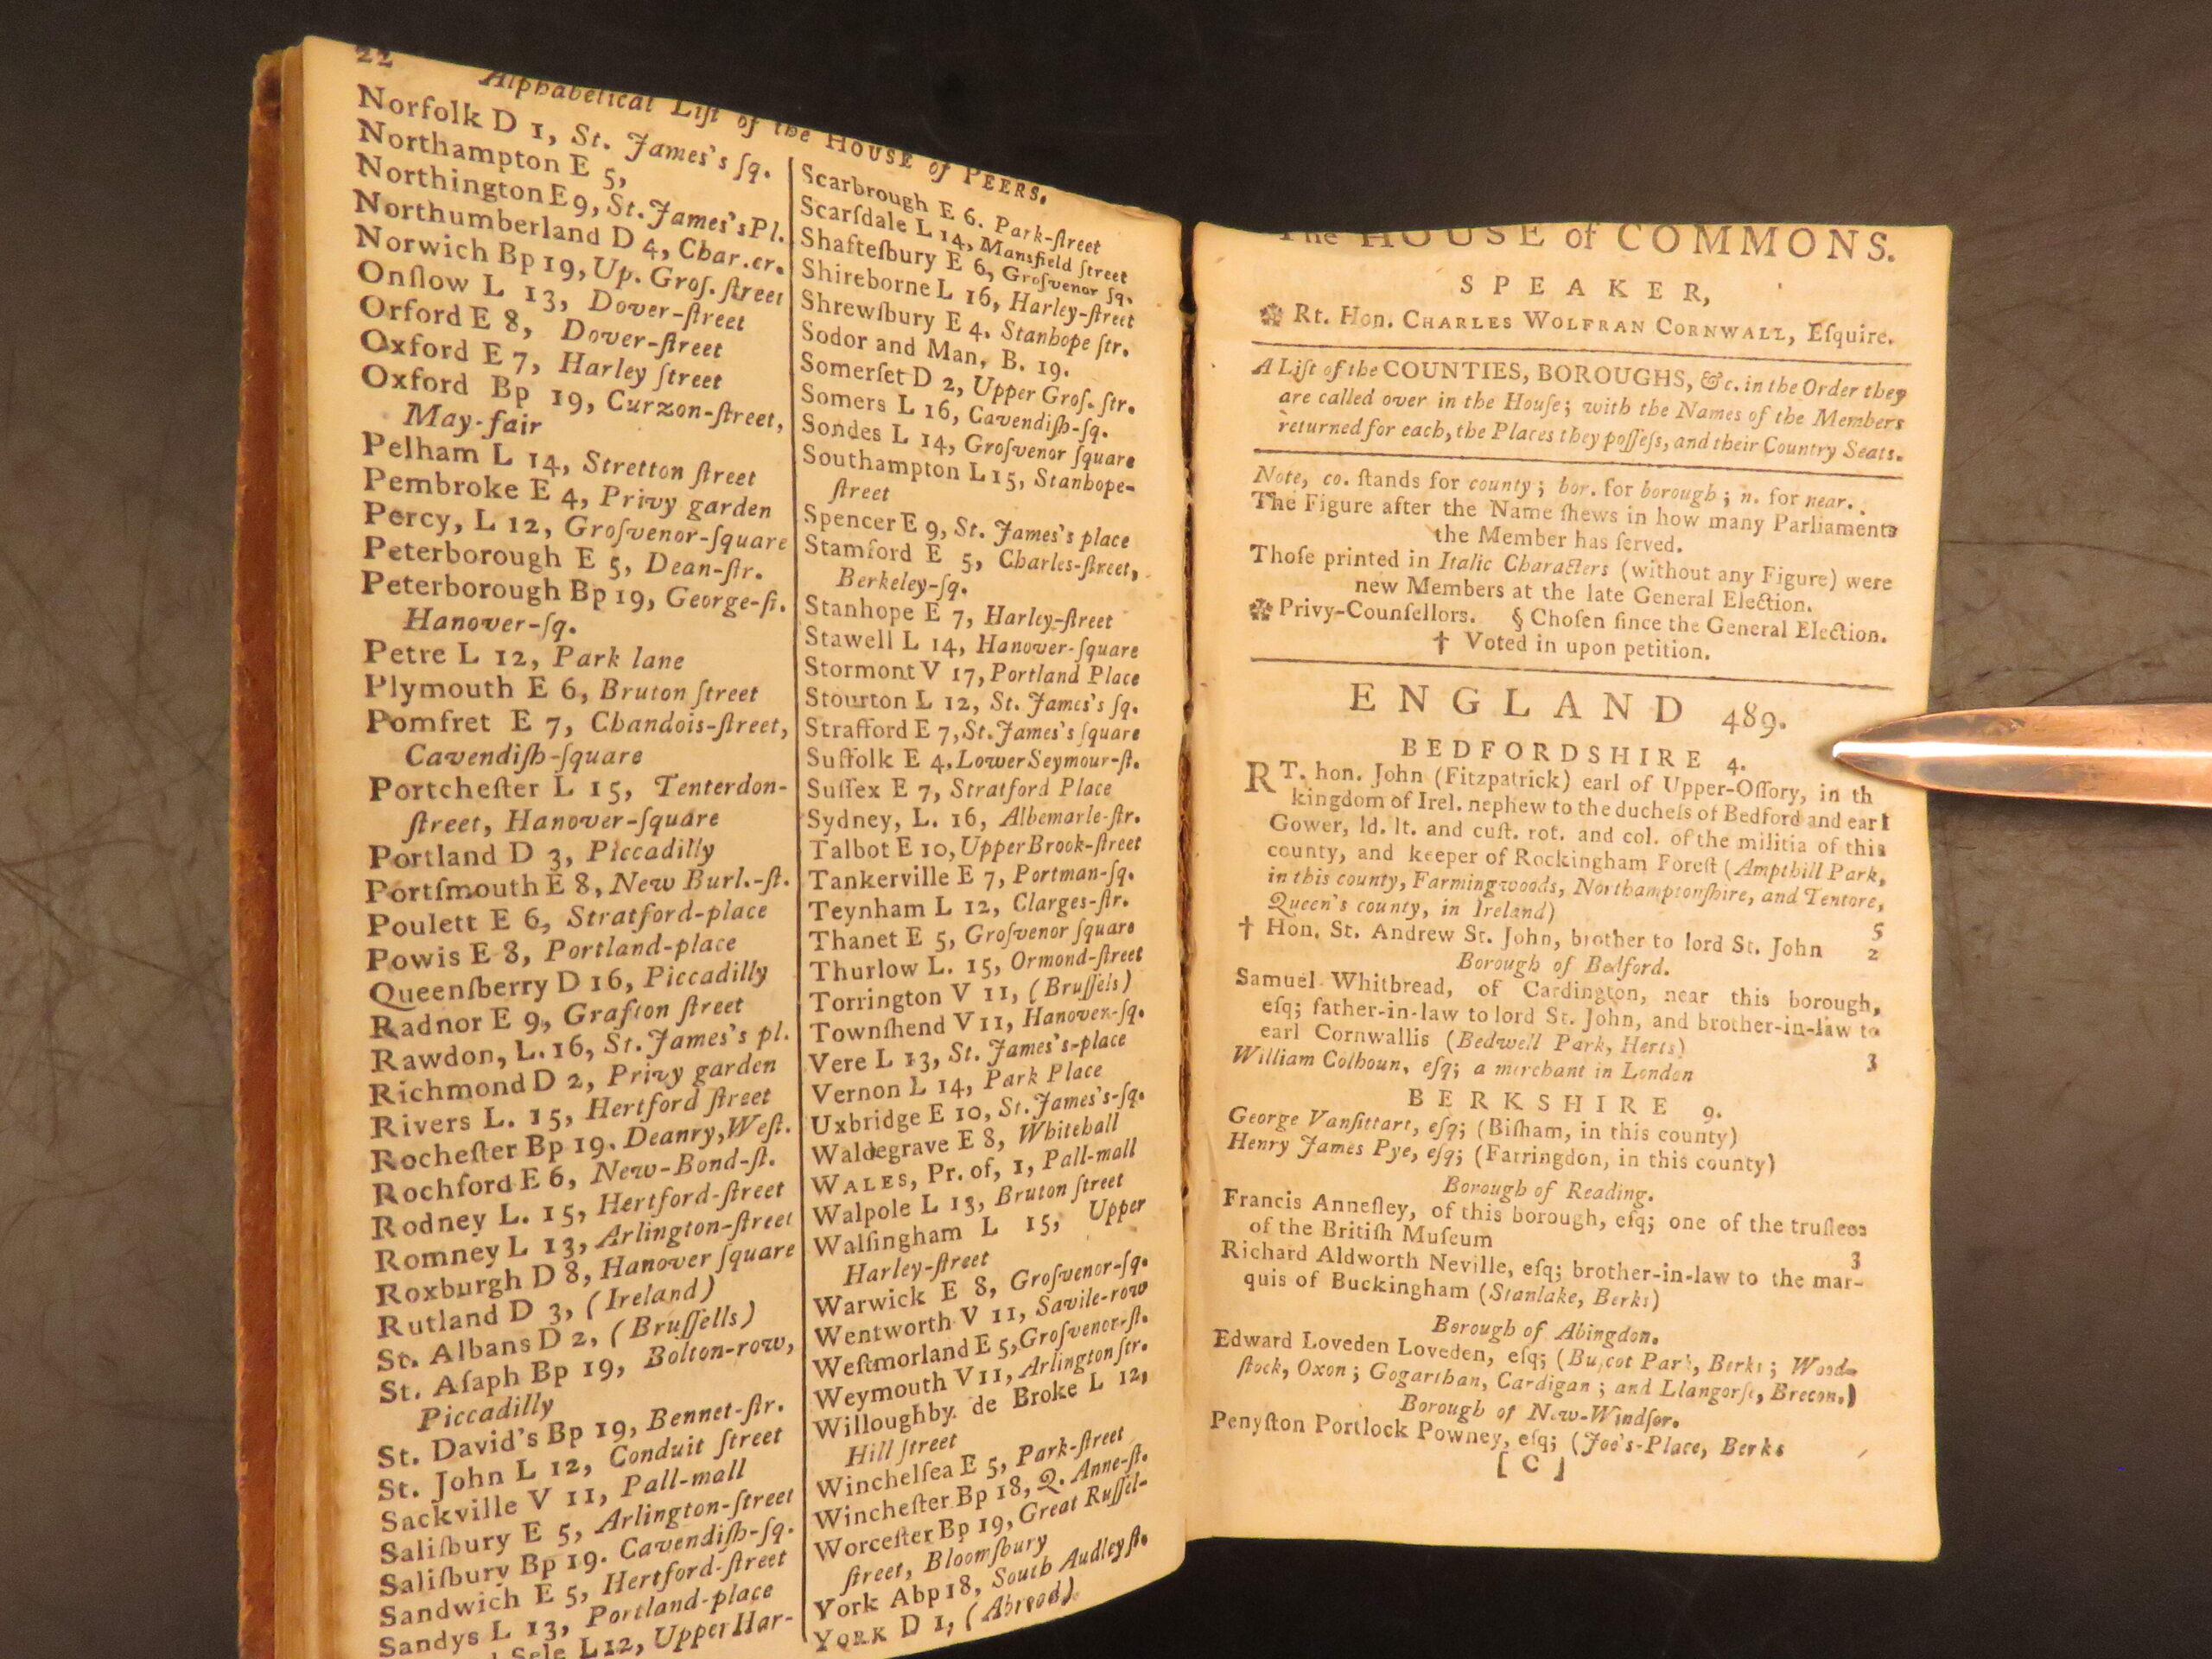 22
Alphabetical Liſt of the HOUSE of PEERS.
Norfolk D 1, St. James's ſq.
Northampton E 5,
Northington E 9, St. James's Pl.
Northumberland D 4, Char.cr.
Norwich Bp 19, Up. Groſ. ſtreet
Onſlow L 13, Dover-ſtreet
Orford E 8, Dover-ſtreet
Oxford E 7, Harley ſtreet
Oxford Bp 19, Curzon-ſtreet,
May-fair
Pelham L 14, Stretton ſtreet
Pembroke E 4, Privy garden
Percy, L 12, Groſvenor-ſquare
Peterborough E 5, Dean-ſtr.
Peterborough Bp 19, George-ſt.
Hanover-ſq.
Petre L 12, Park lane
Plymouth E 6, Bruton ſtreet
Pomfret E 7, Chandois-ſtreet,
Cavendiſh-ſquare
Portcheſter L 15, Tenterdon-
ſtreet, Hanover-ſquare
Portland D 3, Piccadilly
Portſmouth E 8, New Burl.-ſt.
Poulett E 6, Stratford-place
Powis E 8, Portland-place
Queenſberry D 16, Piccadilly
Radnor E 9, Grafton ſtreet
Rawdon, L. 16, St. James's pl.
Richmond D 2, Privy garden
Rivers L. 15, Hertford ſtreet
Rocheſter Bp 19. Deanry, Weſt.
Rochford E 6, New-Bond-ſt.
Rodney L. 15, Hertford-ſtreet
Romney L 13, Arlington-ſtreet
Roxburgh D 8, Hanover ſquare
Rutland D 3, (Ireland)
St. Albans D 2, (Bruſſells)
St. Aſaph Bp 19, Bolton-row,
Piccadilly
St. David's Bp 19, Bennet-ſtr.
St. John L 12, Conduit ſtreet
Sackville V 11, Pall-mall
Saliſbury E 5, Arlington-ſtreet
Saliſbury Bp 19. Cavendiſh-ſq.
Sandwich E 5, Hertford-ſtreet
Sandys L 13, Portland-place
Sele L 12, Upper Har-
Scarbrough E 6. Park-ſtreet
Scarſdale L 14, Mansfield ſtreet
Shafteſbury E 6, Groſvenor ſq.
Shireborne L 16, Harley-ſtreet
Shrewſbury E 4. Stanhope ſtr.
Sodor and Man, B. 19.
Somerſet D 2, Upper Groſ. ſtr.
Somers L 16, Cavendiſh-ſq.
Sondes L 14, Groſvenor ſquare
Southampton L 15, Stanhope-
ſtreet
Spencer E 9, St. James's place
Stamford E 5, Charles-ſtreet,
Berkeley-ſq.
Stanhope E 7, Harley-ſtreet
Stawell L 14, Hanover-ſquare
Stormont V 17, Portland Place
Stourton L 12, St. James's ſq.
Strafford E 7, St. James's ſquare
Suffolk E 4, Lower Seymour-ſt.
Suſſex E 7, Stratford Place
Sydney, L. 16, Albemarle-ſtr.
Talbot E 10, Upper Brook-ſtreet
Tankerville E 7, Portman-ſq.
Teynham L 12, Clarges-ſtr.
Thanet E 5, Groſvenor ſquare
Thurlow L. 15, Ormond-ſtreet
Torrington V 11, (Bruſſels)
Townſhend V 11, Hanover-ſq.
Vere L 13, St. James's-place
Vernon L 14, Park Place
Uxbridge E 10, St. James's-ſq.
Waldegrave E 8, Whitehall
WALES, Pr. of, 1, Pall-mall
Walpole L 13, Bruton ſtreet
Walſingham L 15, Upper
Harley-ſtreet
Warwick E 8, Groſvenor-ſq.
Wentworth V 11, Savile-row
Weſtmorland E 5, Groſvenor-ſt.
Weymouth V 11, Arlington ſtr.
Willoughby de Broke L 12,
Hill ſtreet
Winchelſea E 5, Park-ſtreet
Wincheſter Bp 18, Q. Anne-ſt.
Worceſter Bp 19, Great Ruſſel-
ſtreet, Bloomſbury
York Abp 18, South Audley ſt.
YORK D 1, (Abroad)
The HOUSE of COMMONS.
SPEAKER,
Rt. Hon. CHARLES WOLFRAN CORNWALL, Eſquire.
A Liſt of the COUNTIES, BOROUGHS, &c. in the Order they
are called over in the Houſe; with the Names of the Members
returned for each, the Places they poſſeſs, and their Country Seats.
Note, co. ſtands for county; bor. for borough; n. for near.
The Figure after the Name ſhews in how many Parliaments
the Member has ſerved.
Thoſe printed in Italic Characters (without any Figure) were
new Members at the late General Election.
Privy-Counſellors. § Choſen ſince the General Election.
† Voted in upon petition.
ENGLAND 489.
BEDFORDSHIRE 4.
RT. hon. John (Fitzpatrick) earl of Upper-Oſſory, in th
kingdom of Irel. nephew to the ducheſs of Bedford and earl
Gower, ld. lt. and cuſt. rot. and col. of the militia of this
county, and keeper of Rockingham Foreſt (Ampthill Park,
in this county, Farmingwoods, Northamptonſhire, and Tentore,
Queen's county, in Ireland) 5
† Hon. St. Andrew St. John, brother to lord St. John 2
Borough of Bedford.
Samuel Whitbread, of Cardington, near this borough,
eſq; father-in-law to lord St. John, and brother-in-law to
earl Cornwallis (Bedwell Park, Herts) 3
William Colhoun, eſq; a merchant in London
BERKSHIRE 9.
George Vanſittart, eſq; (Biſham, in this county)
Henry James Pye, eſq; (Farringdon, in this county)
Borough of Reading.
Francis Anneſley, of this borough, eſq; one of the truſtees
of the Britiſh Muſeum 3
Richard Aldworth Neville, eſq; brother-in-law to the mar-
quis of Buckingham (Stanlake, Berks)
Borough of Abingdon.
Edward Loveden Loveden, eſq; (Buſcot Park, Berks; Wood-
ſtock, Oxon; Gogarthan, Cardigan; and Llangorſe, Brecon.)
Borough of New-Windſor.
Penyſton Portlock Powney, eſq; (Joe's-Place, Berks
[C]